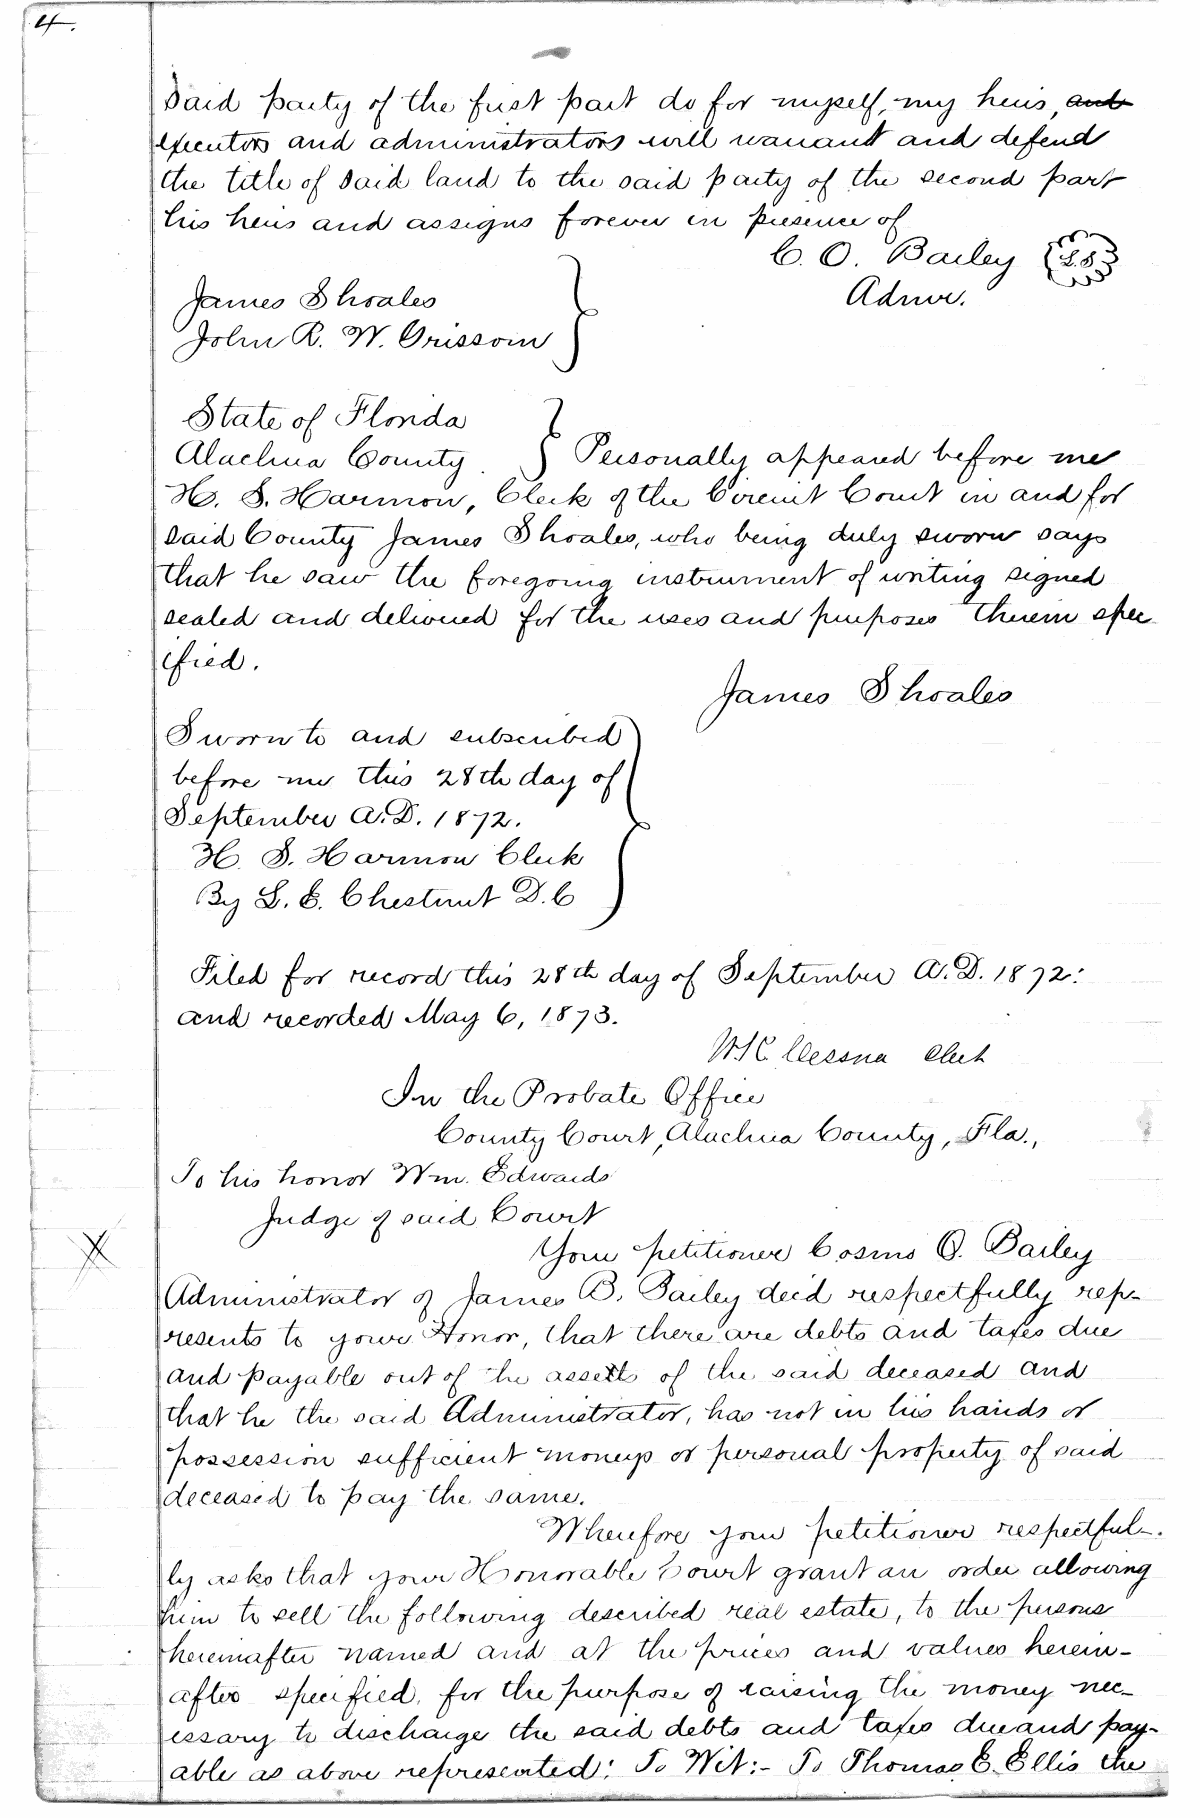 4.
Said party of the first part do for myself, my heirs, and
executors and administrators will warrant and defend
the title of said land to the said party of the second part
his heirs and assigns forever in presence of
C. O. Bailey L.S
Admr.
James Shoales
John R. W. Grissom
State of Florida
Alachua County. Personally appeared before me
H. S. Harmon, Clerk of the Circuit Court in and for
said County James Shoales, who being duly sworn says
that he saw the foregoing instrument of writing signed
sealed and delivered for the uses and purposes therein spec
ified.
James Shoales
Sworn to and subscribed
before me this 28th day of
September A.D. 1872.
H. S. Harmon Clerk
By L. E. Chestnut D.C
Filed for record this 28th day of September A.D. 1872:
and recorded May 6, 1873.
Cessna Clerk
In the Probate Office
County Court, Alachua County, Fla.,
To his honor Wm. Edwards
Judge of said Court
Your petitioner Cosmo O. Bailey
Administrator of James B. Bailey dec'd respectfully rep-
resents to your Honor, that there are debts and taxes due
and payable out of the assetts of the said deceased and
that he the said Administrator, has not in his hands or
possession sufficient moneys or personal property of said
deceased to pay the same.
Wherefore your petitioner respectful-
ly asks that your Honorable Court grant an order allowing
him to sell the following described real estate, to the persons
hereinafter named and at the prices and values herein-
after specified, for the purpose of raising the money nec-
essary to discharge the said debts and taxes due and pay-
able as above represented: To Wit:- To Thomas E. Ellis the